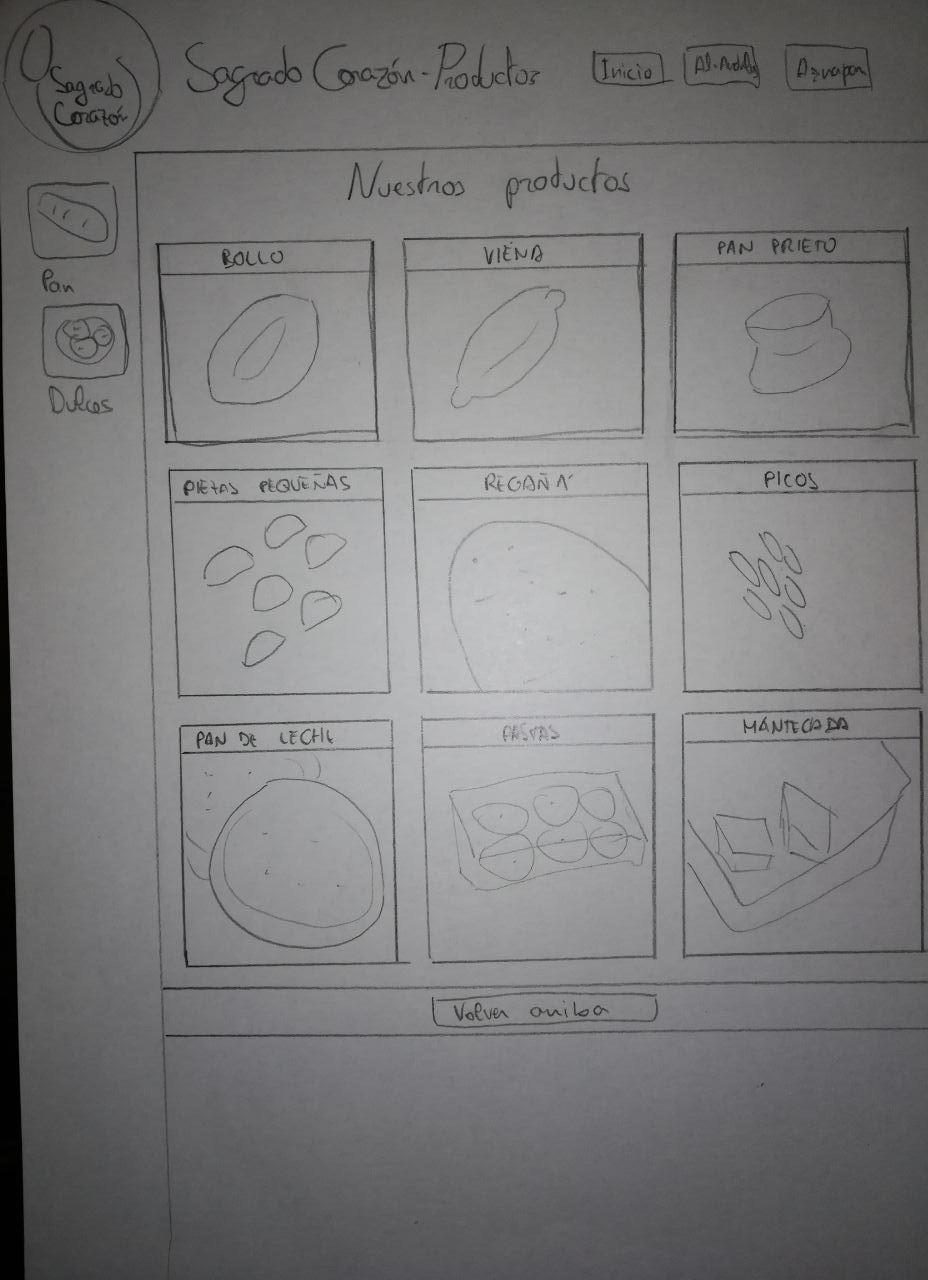 Sagrado
Corazón
Sagrado Corazón-Productos
Inicio
Al-Andalus
Azuapan
Nuestros productos
Pan
Dulces
BOLLO
VIENA
PAN PRIETO
PIEZAS PEQUEÑAS
REGAÑÁ
PICOS
PAN DE LECHE
PASTAS
MANTECADA
Volver arriba